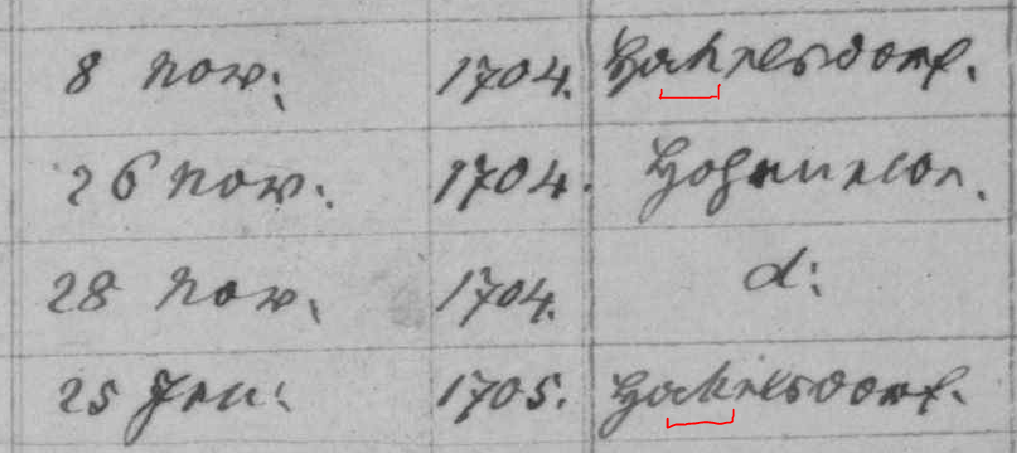 8 Nov: 1704. Hackelsdorf.
26 Nov. 1704. Hohenelbe.
28 Nov. 1704. d:
25 Jan: 1705. Hackelsdorf.